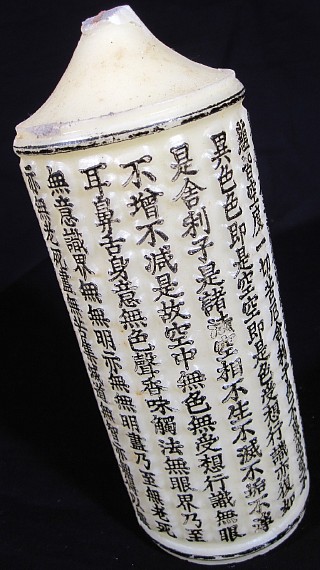 皆空度一切苦厄舍利子色不
異色色即是空空即是色受想行識亦復如
是舍利子是諸法空相不生不滅不垢不淨
不增不減是故空中無色無受想行識無眼
耳鼻舌身意無色聲香味觸法無眼界乃至
無意識界無無明亦無無明盡乃至無老死
亦無老死盡無苦集滅道無智亦無得